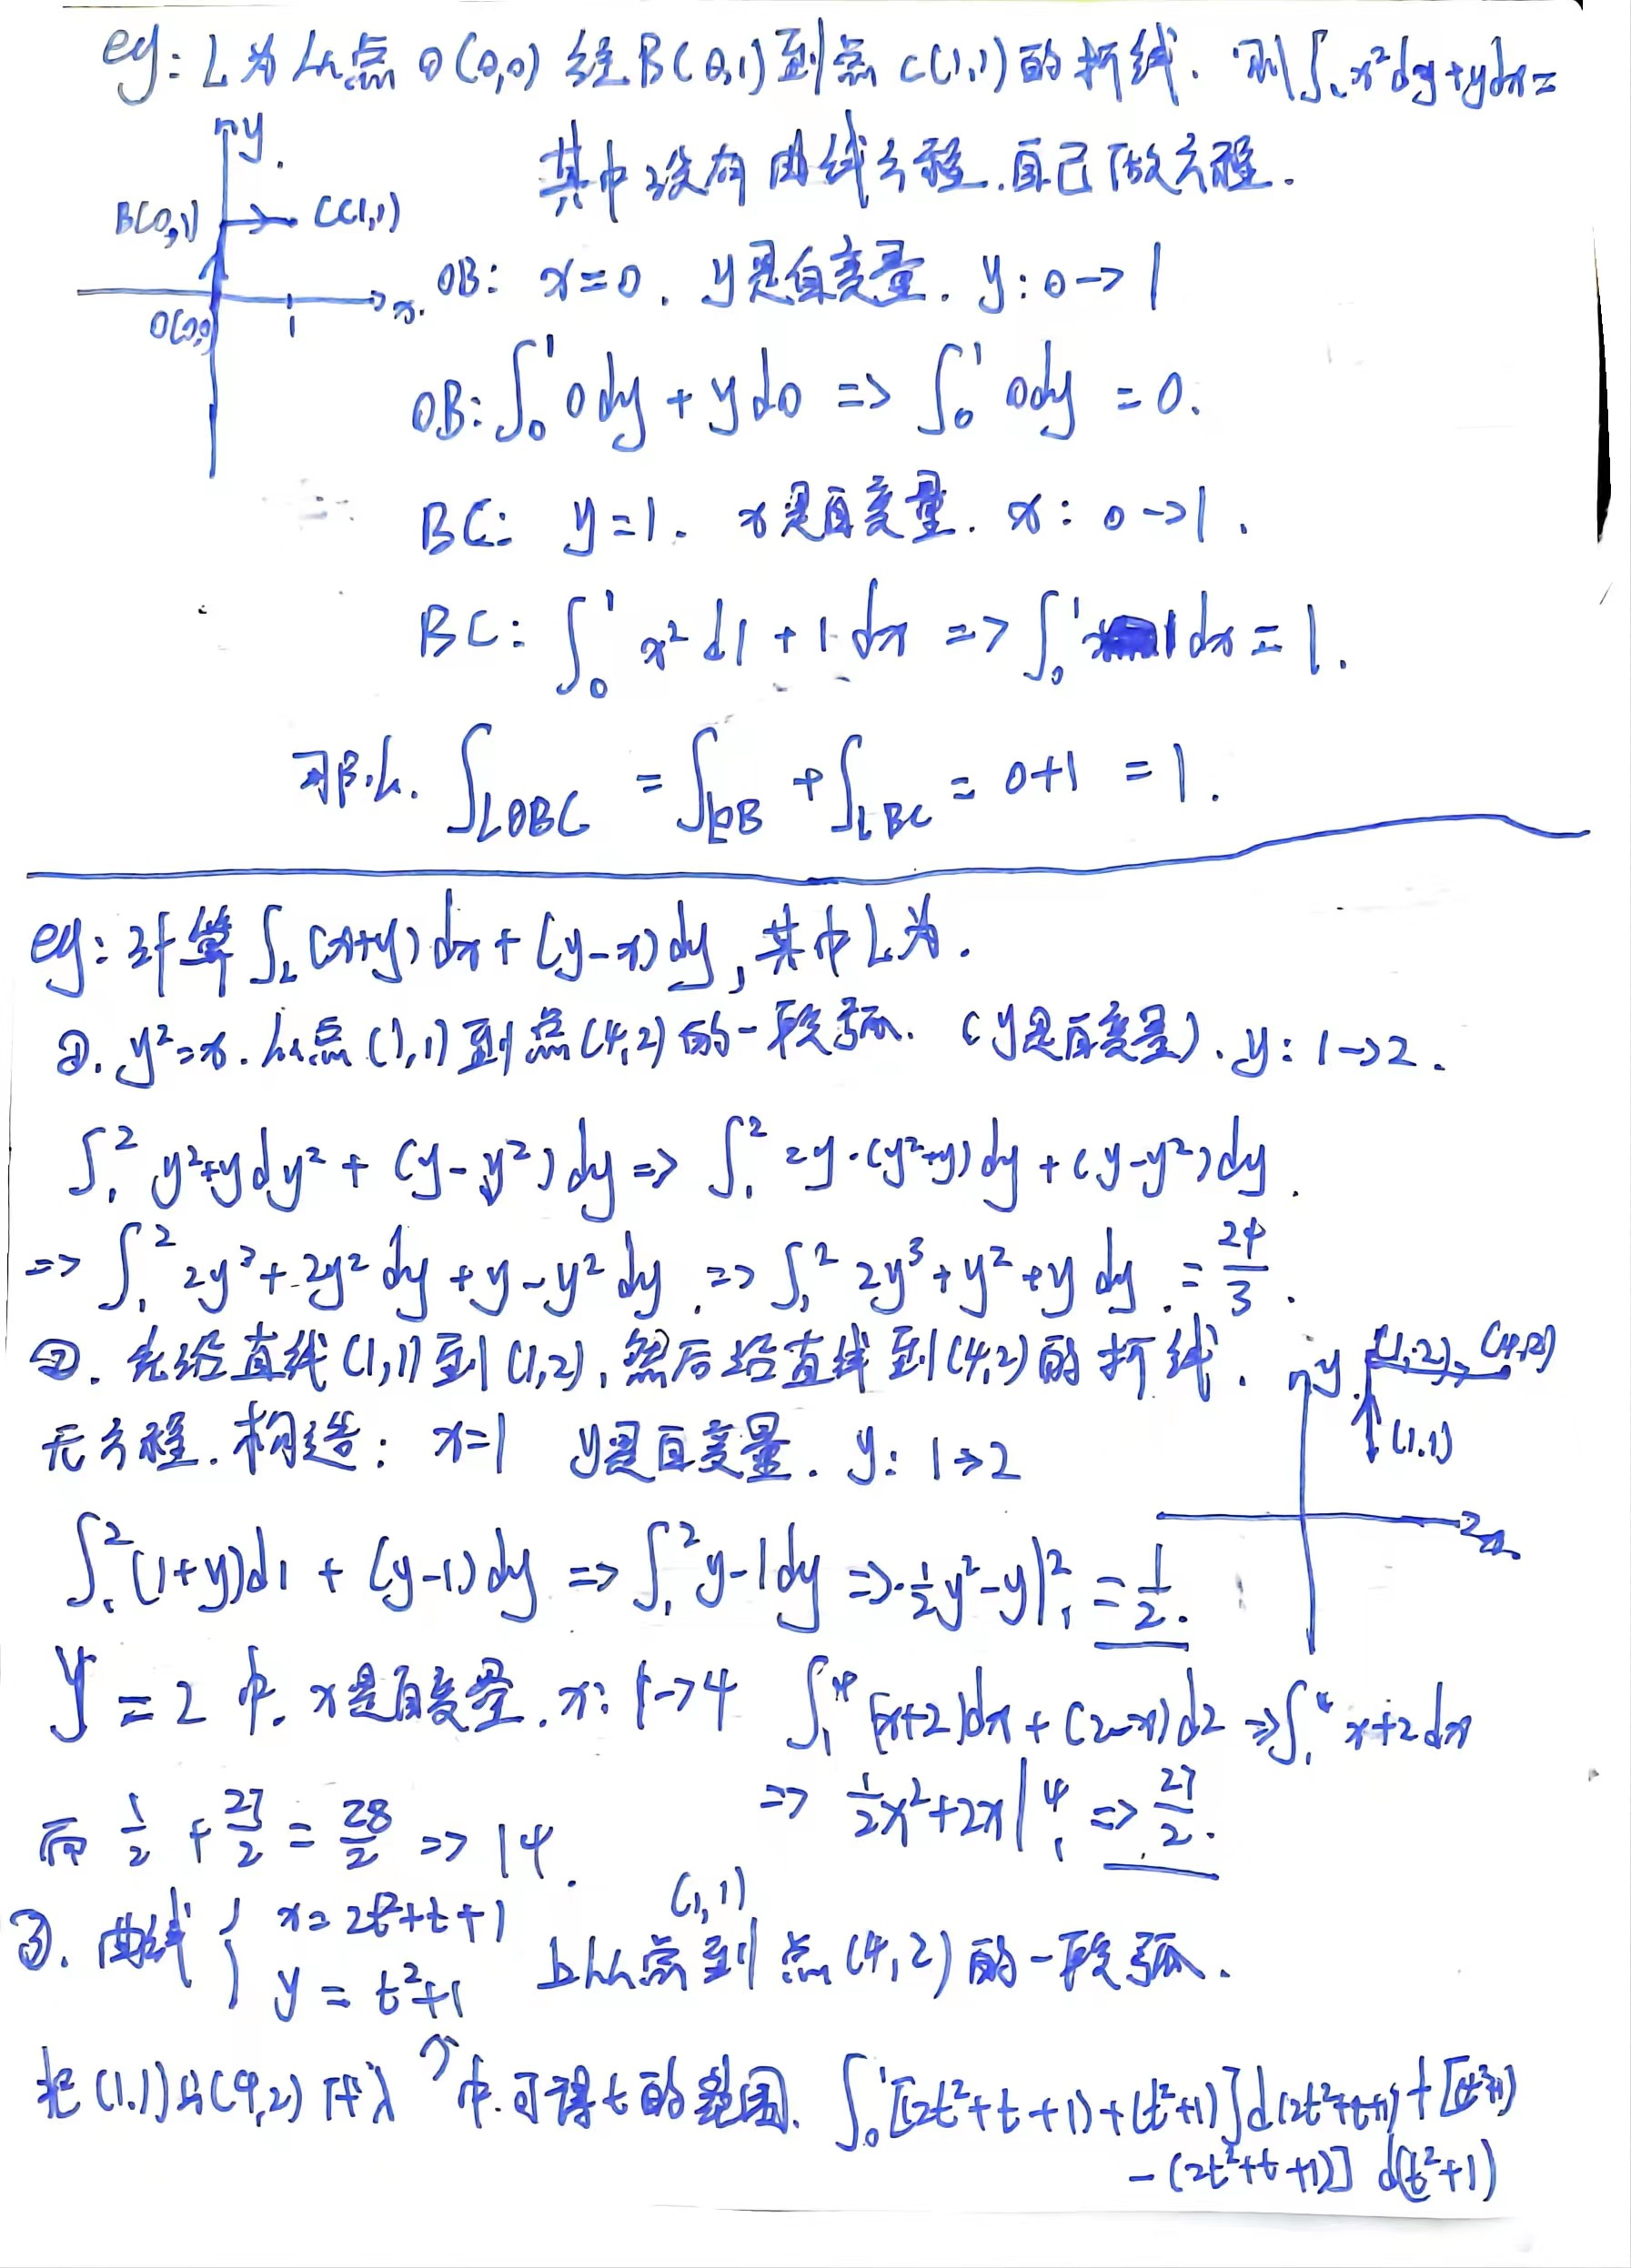 eg: L为从点O(0,0)经B(0,1)到点C(1,1)的折线. 则∫_L x²dy+ydx=
y.
其中没有曲线方程.自己做方程.
B(0,1) C(1,1)
OB: x=0. y是自变量. y: 0→1
x.
O(0,0) 1
OB: ∫₀¹ 0dy + yd0 => ∫₀¹ 0dy = 0.
BC: y=1. x是自变量. x: 0→1.
BC: ∫₀¹ x²d1 + 1·dx => ∫₀¹ 1dx = 1.
那么. ∫_LOBC = ∫_LOB + ∫_LBC = 0+1 = 1.
eg: 计算∫_L (x+y)dx + (y-x)dy, 其中L为.
①. y²=x. 从点(1,1)到点(4,2)的一段弧. (y是自变量). y: 1→2.
∫₁² y²+ydy² + (y-y²)dy => ∫₁² 2y·(y²+y)dy + (y-y²)dy.
=> ∫₁² 2y³+2y²dy + y-y²dy. => ∫₁² 2y³+y²+y dy. = 34/3.
②. 先沿直线(1,1)到(1,2), 然后沿直线到(4,2)的折线. y (1,2) (4,2)
无方程. 构造: x=1 y是自变量. y: 1→2 (1.1)
∫₁²(1+y)d1 + (y-1)dy => ∫₁² y-1dy => ½y²-y|₁² = 1/2.
x
y=2中. x是自变量. x: 1→4 ∫₁⁴ (x+2)dx + (2-x)d2 => ∫₁⁴ x+2dx
=> ½x²+2x|₁⁴ => 27/2.
而 1/2 + 27/2 = 28/2 => 14.
③. 曲线{ x=2t²+t+1 y=t²+1 上从点(1,1)到点(4,2)的一段弧.
把(1.1)与(4,2)代入↑中.可得t的范围. ∫₀¹[(2t²+t+1)+(t²+1)]d(2t²+t+1)+[(t²+1)
-(2t²+t+1)] d(t²+1)